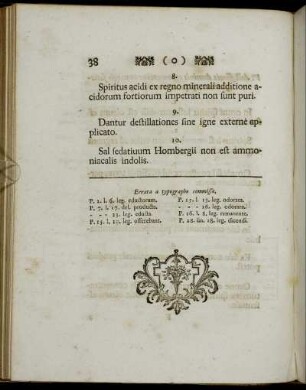 38 ( o )
8.
Spiritus acidi ex regno minerali additione a-
cidorum fortiorum impetrati non sunt puri.
9.
Dantur destillationes sine igne externe ap-
plicato.
10.
Sal sedativum Hombergii non est ammo-
niacalis indolis.
Errata a typographo commissa.
P. 2. l. 6. leg. edactorum.
P. 7. l. 17. del. producta.
- - - 23. leg. edulia.
P. 13. l. 27. leg.
P. 15. l. 13. leg. odorem.
- - - 16. leg. odorem.
P. 16. l. 2. leg.
P. 22. lin. 18. leg. dicendi.